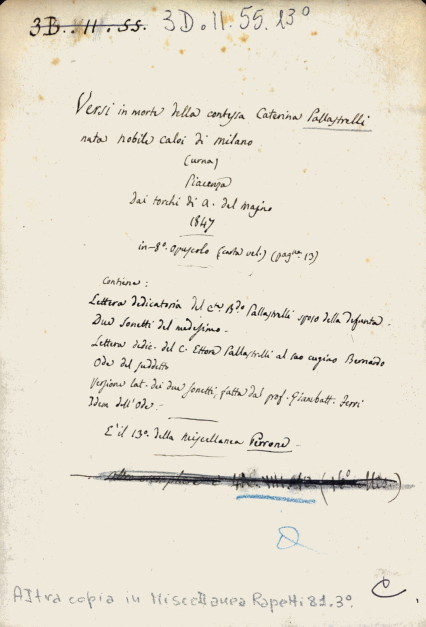 3D. II. 55. 3D. II. 55. 13º
Versi in morte della contessa Caterina Pallastrelli
nata nobile Calci di Milano
(urna)
Piacenza
dai torchi di A. del Majno
1847
in-8º. opuscolo (carta vel.) (pag.ne 13)
Contiene:
Lettera dedicatoria del C.te B.do Pallastrelli sposo della defunta.
Due Sonetti del medesimo.
Lettera dedic. del C. Ettore Pallastrelli al suo cugino Bernardo
Ode del suddetto
Versione lat. dei due sonetti, fatta dal prof. Giambatt.
Idem dell'Ode.
È il 13º. della Miscellanea Perrone.
C.
Altra copia in Miscellanea Rapetti 81.3º.